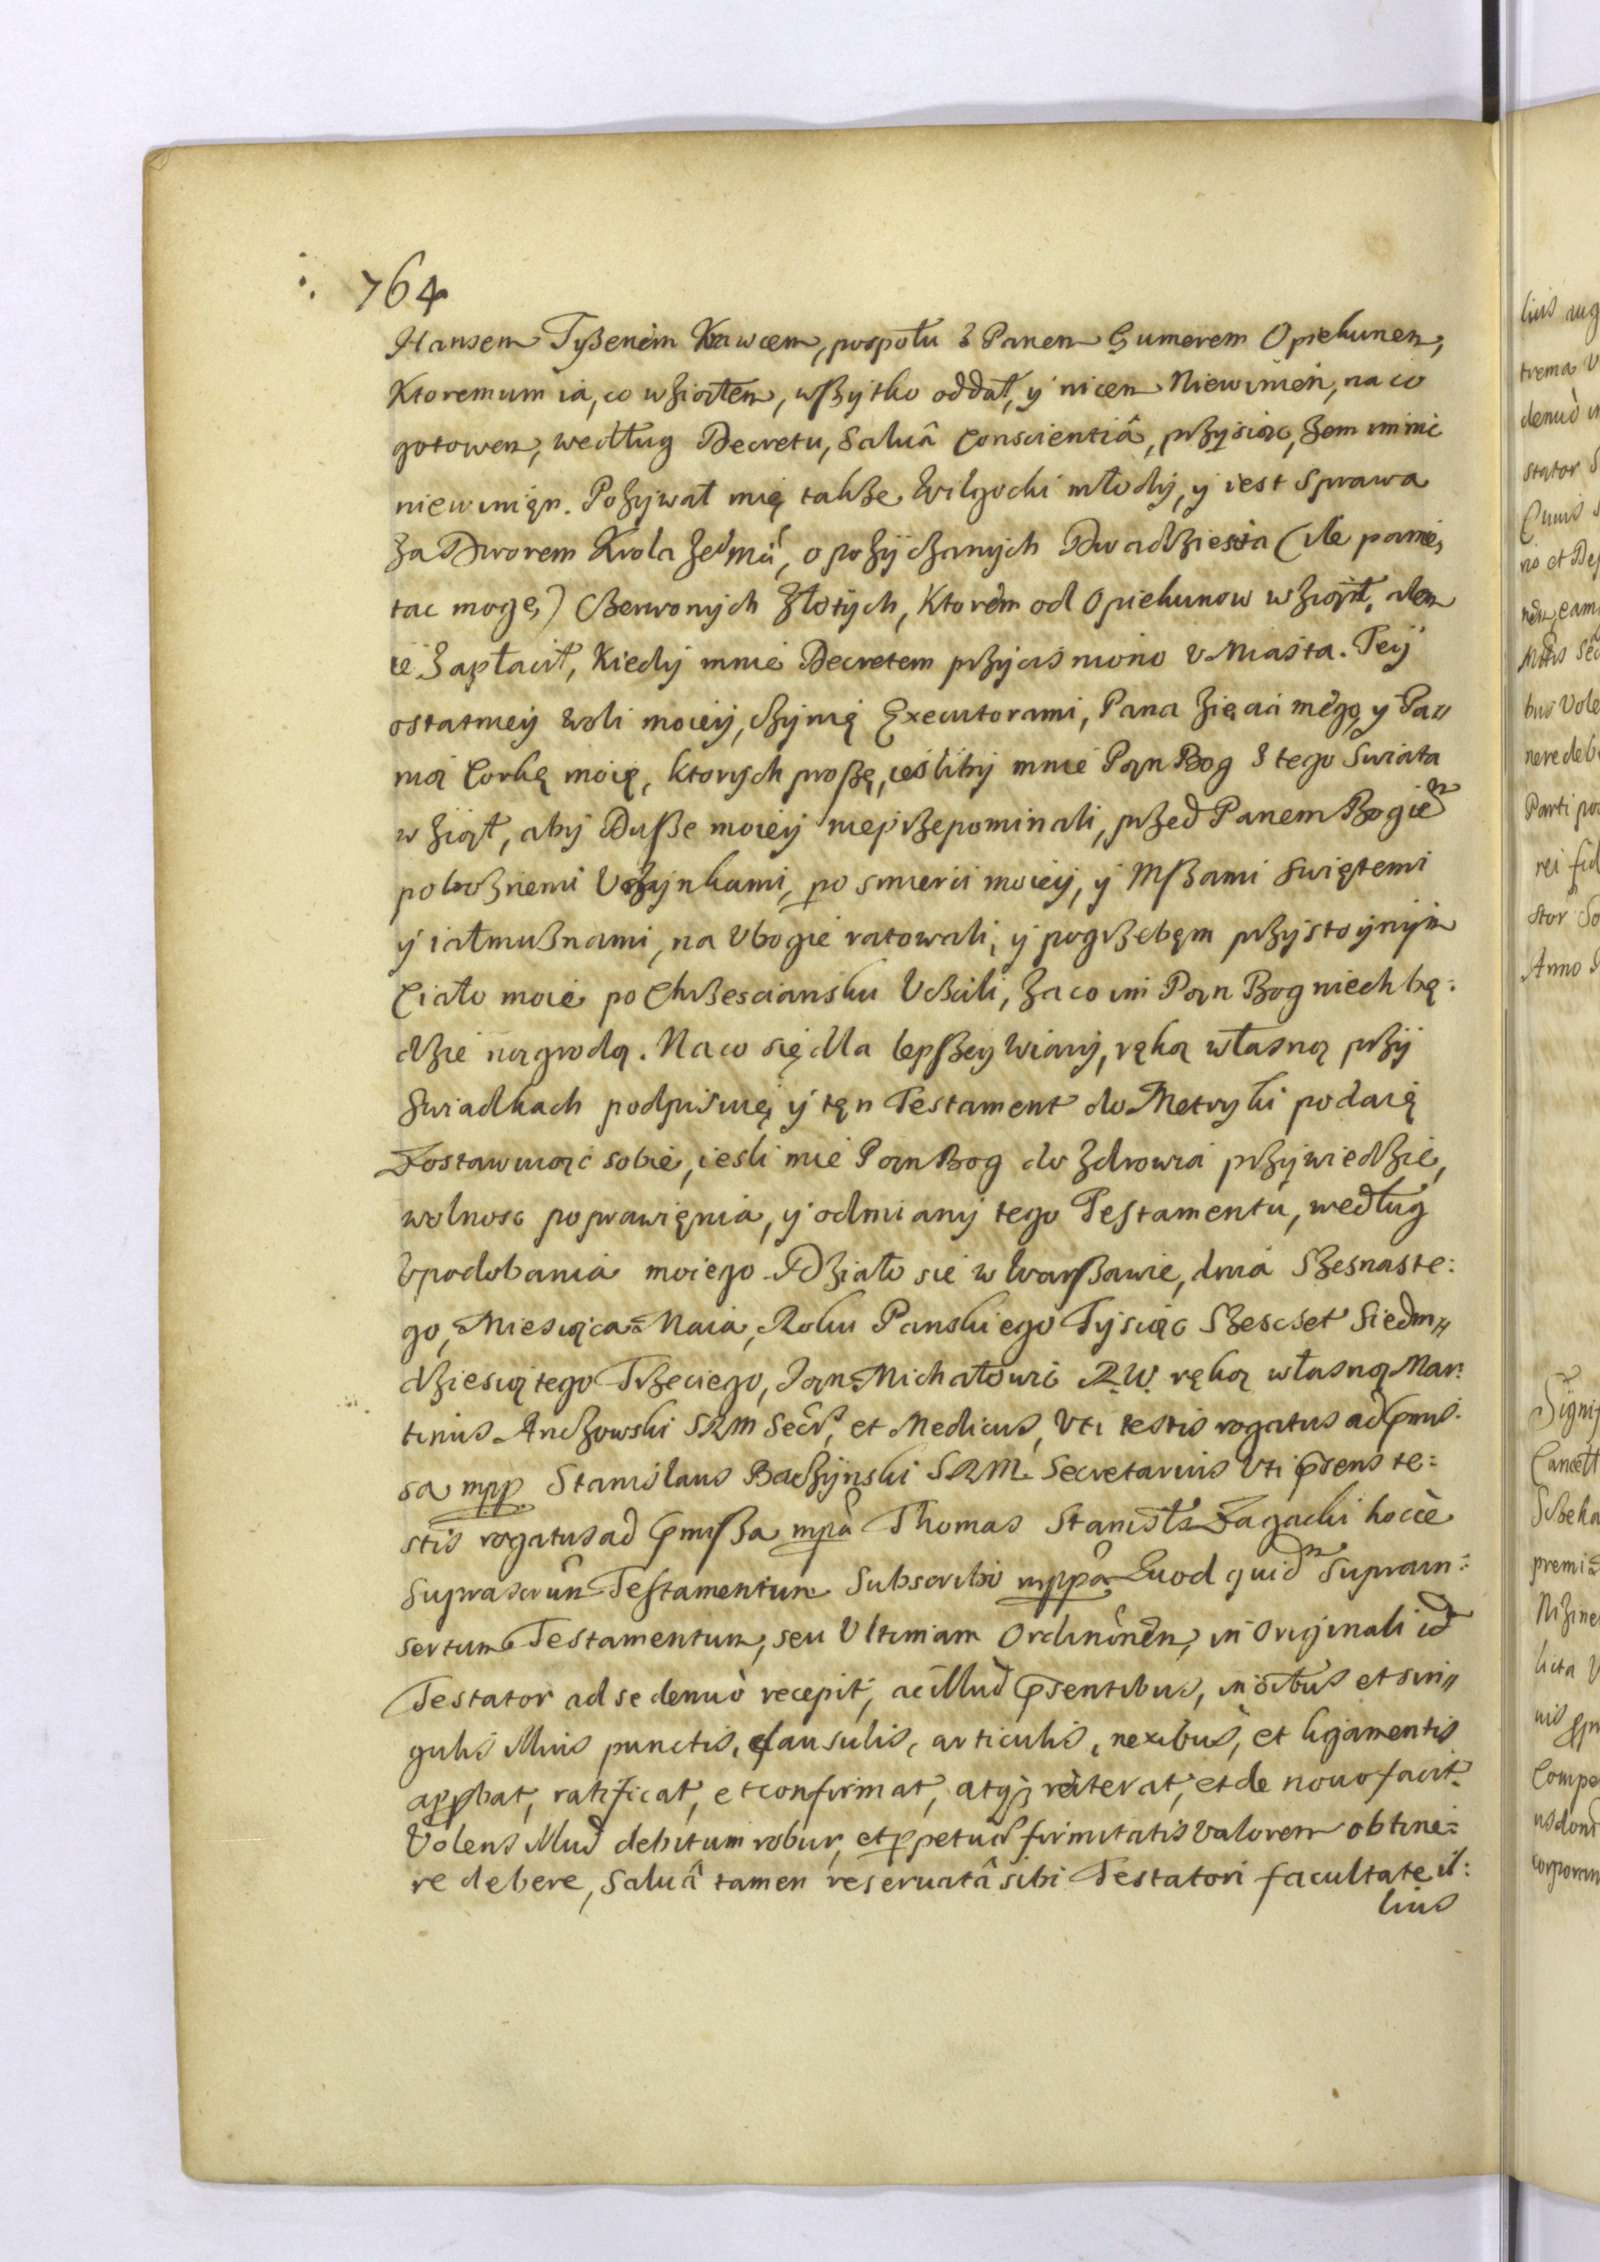 764
Hansem Tyszenem Krawcem, pospołu z Panem Gumerem Opiekunem,
Ktoremum ia, co wziołem, wszytko oddał, y nicem Niewinien, na co
gotowem, według Decretu, Saluâ Conscientiâ, przysiąc, żem im nic
niewinięn. Pozywał mię także Wilgocki młody, y iest Sprawa
Za Dworem Krola Jeo Mci, o pozyczanych Dwadziescia (ile pamię,
tac mogę) Czerwonych Złotych, Ktorem od Opiekunow wziął, alem
ie Zapłacił, Kiedy mnie Decretem przycisniono v Miasta. Tey
ostatniey woli moiey, czynię Executorami, Pana Zięcia mego, y Pa〃
nią Corkę moię, ktorych proszę, iesliby mnie Pąn Bog z tego Swiata
wziął, aby Dusze moiey nieprzepominali, przed Panem Bogiem
pobożnemi Vczynkami, po smierci moiey, y Mszami Swiętemi
y iałmużnami, na Vbogie ratowali, y pogrzebęm przystoynym
Ciało moie po Chrzesciansku Vczcili, za co im Pąn Bog niech bę:
dzie nagrodą. Na co się dla lepszey Wiary, ręką własną przy
Swiadkach podpisuię, y tęn Testament do Metryki podaię
Zostawuiąc sobie, iesli mie Pąn Bog do Zdrowia przywiedzie,
wolnosc poprawięnia, y odmiany tego Testamentu, według
Vpodobania moiego. Działo sie w Warszawie, dnia Szesnaste:
go, Miesiąca Maia, Roku Panskiego Tysiąc Szescset Siedm〃
dziesiątego Trzeciego, Ian Michałowic R.W. ręką własną Mar:
tinus Anczowski SRM Secrs, et Medicus, Vti testis rogatus ad pmis:
sa mpp Stanislaus Baczynski SRM Secretarius Vti prsens te:
stis rogatus ad prmissa mpa Thomas Stanisłs Zagacki hocce
Suprascrūm Testamentum Subscribo mppa Quod quidm Suprain:
sertum Testamentum, seu Vltimam Ordinōnem, in Originali idm
Testator ad se denuò recepit, ac illud prsentibus, in oībus et sin〃
gulis illius punctis, clausulis, articulis, nexibus, et ligamentis
approbat, ratificat, et confirmat, atqȝ reiterat, et de nouo facit.
Volens illud debitum robur, et perpetuæ firmitatis Valorem obtine:
re debere, Saluâ tamen reseruatâ sibi Testatori facultate il:
lius